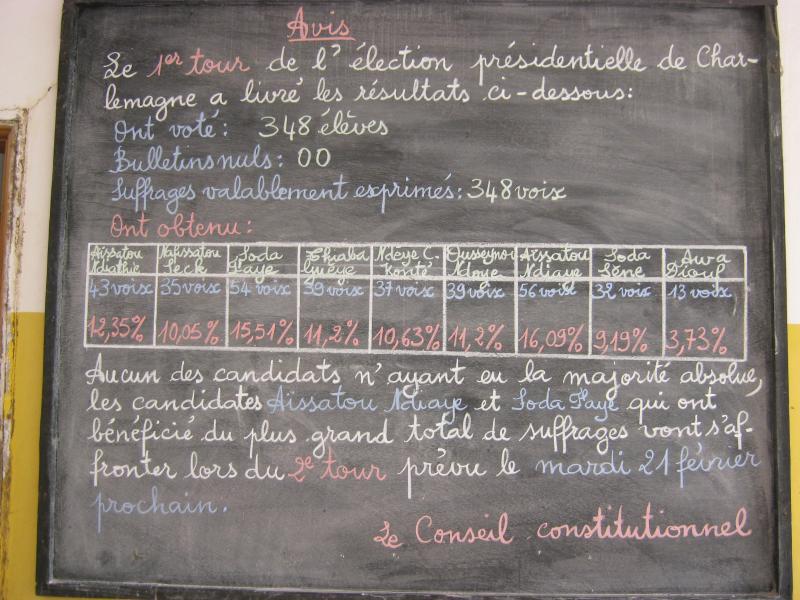 Avis
Le 1er tour de l'élection présidentielle de Char-
lemagne a livré les résultats ci-dessous:
Ont voté: 348 élèves
Bulletins nuls: 00
Suffrages valablement exprimés: 348 voix
Ont obtenu:
Aïssatou Ndiathie | Nafissatou Seck | Soda Faye | Thiaba Guèye | Ndèye C. Konté | Ousseynou Ndoye | Aïssatou Ndiaye | Soda Sène | Awa Diouf
43 voix | 35 voix | 54 voix | 39 voix | 37 voix | 39 voix | 56 voix | 32 voix | 13 voix
12,35% | 10,05% | 15,51% | 11,2% | 10,63% | 11,2% | 16,09% | 9,19% | 3,73%
Aucun des candidats n'ayant eu la majorité absolue,
les candidates Aïssatou Ndiaye et Soda Faye qui ont
bénéficié du plus grand total de suffrages vont s'af-
fronter lors du 2e tour prévu le mardi 21 février
prochain.
Le Conseil constitutionnel